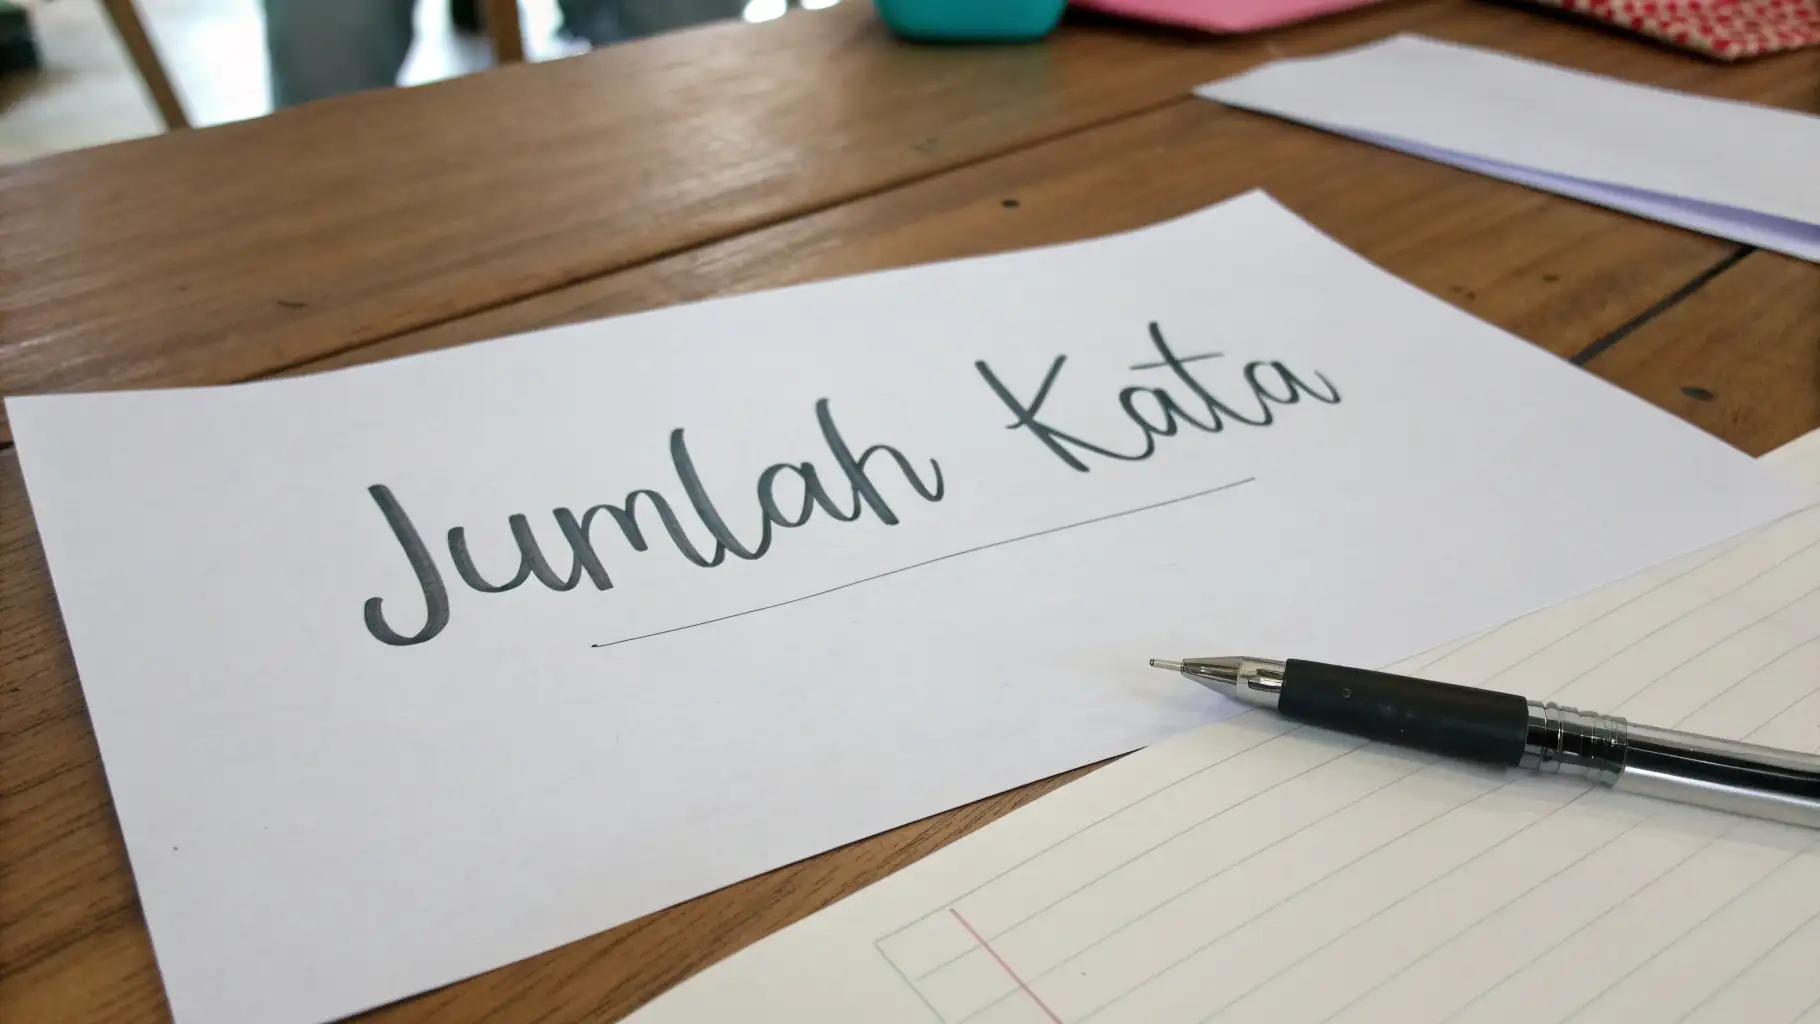 Jumlah Kata